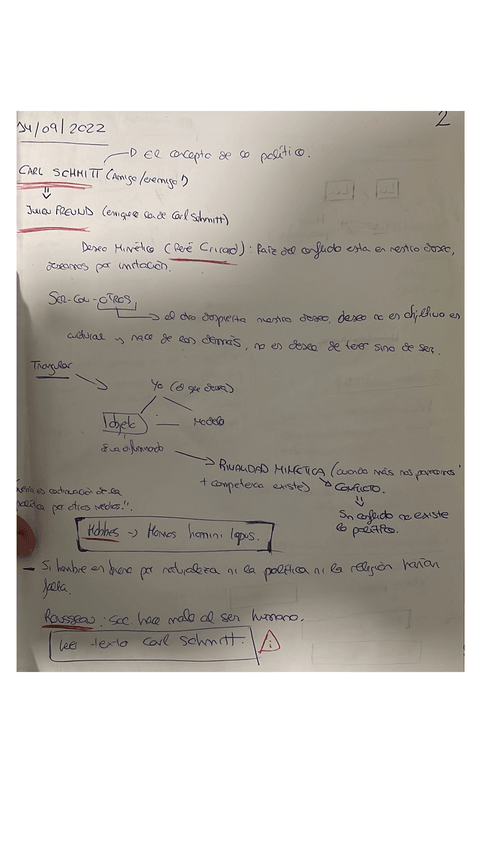 14/09/2022
2
El concepto de lo político.
CARL SCHMITT (Amigo/enemigo!)
JULIEN FREUND (enemigo Carl Schmitt)
Deseo Mimético (René Girard): Raíz del conflicto esta en nuestro deseo,
deseamos por imitación.
SER-CON-OTROS
el otro despierta nuestro deseo, deseo no es objetivo es
cultural nace de los demás, no es deseo de tener sino de ser.
Triangular
Yo (el que desea)
objeto
Modelo
RIVALIDAD MIMETICA (cuando más nos parecemos
+ competencia existe)
CONFLICTO.
Sin conflicto no existe
lo político.
continuación de la
política por otros medios!".
Hobbes → Homo homini lupus.
— Si hombre es bueno por naturaleza ni la política ni la religión harían
falta.
Rousseau: soc. hace malo al ser humano.
leer texto Carl Schmitt.